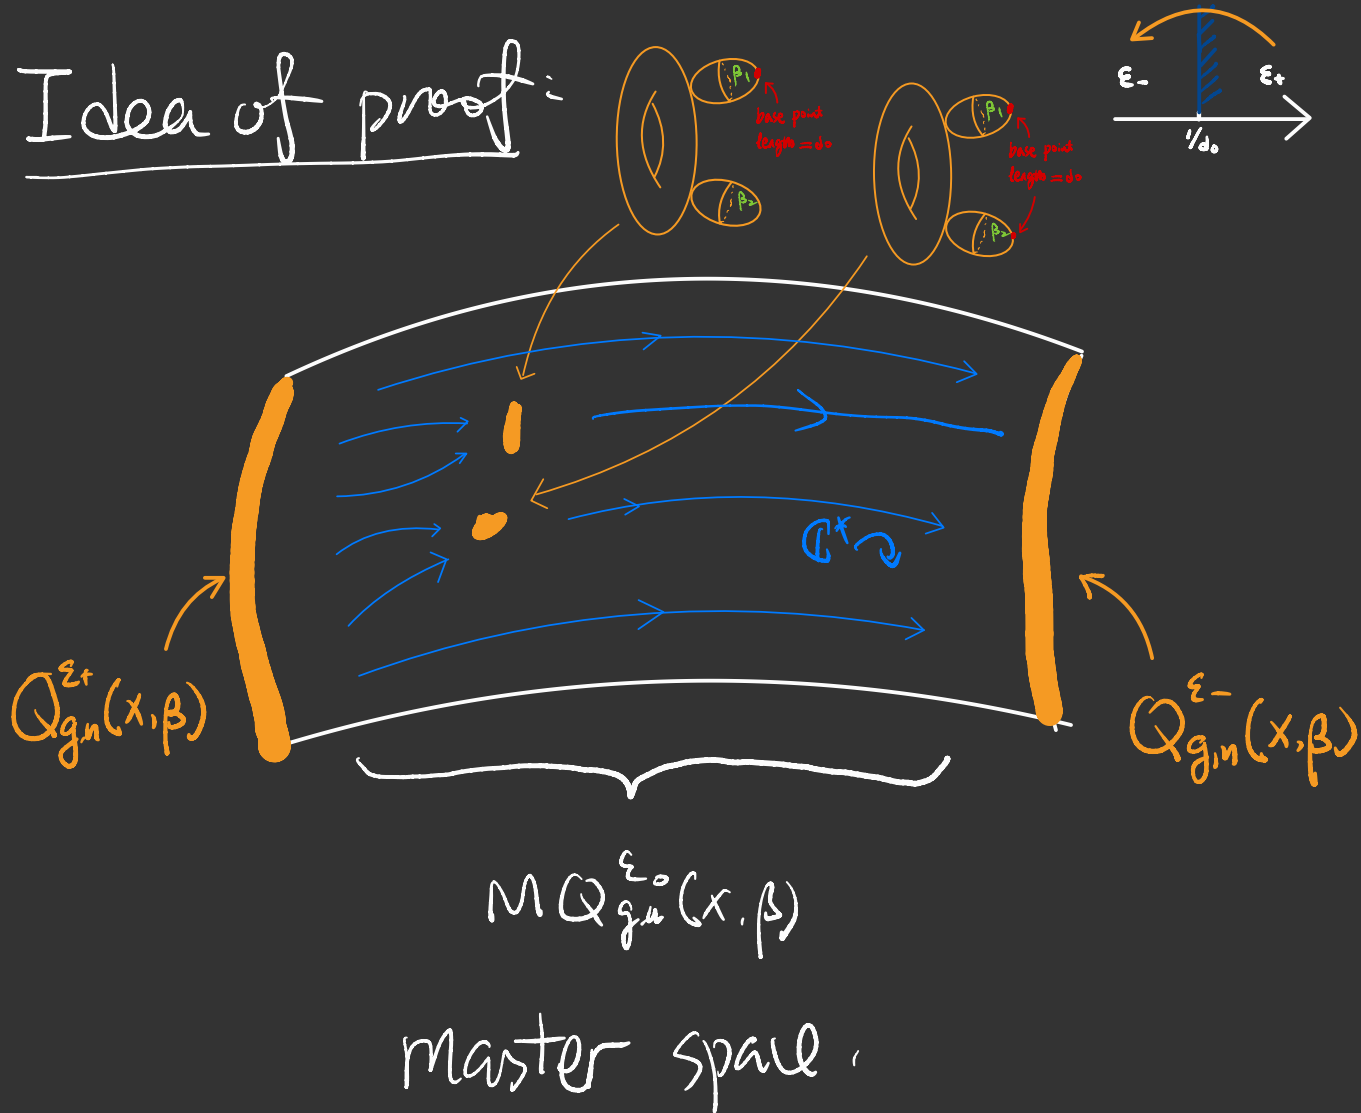 Idea of proof:
β₁
base point
length = d₀
β₂
β₁
base point
length = d₀
β₂
ε₋
ε₊
1/d₀
ℂ*
Q^{ε₊}_{g,n}(X,β)
Q^{ε₋}_{g,n}(X,β)
MQ^{ε₀}_{g,n}(X,β)
master space.